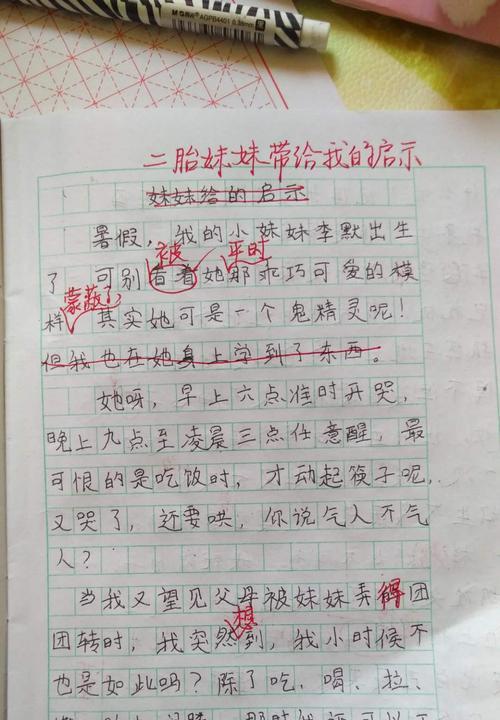 M&G 晨光 AGPB4401 0.38mm
二胎妹妹带给我的启示
妹妹给的启示
暑假，我的小妹妹李默出生
被 平时
了 可别看着她那乖巧可爱的模
蒙蔽了
样，其实她可是一个鬼精灵呢！
但我也在她身上学到了东西。
她呀，早上六点准时开哭，
晚上九点至凌晨三点任意醒，最
可恨的是吃饭时，才动起筷子呢，
又哭了，还要哄，你说气人不气
人？
当我又望见父母被妹妹弄得团
想
团转时，我突然到，我小时候不
也是如此吗？除了吃、喝、拉、